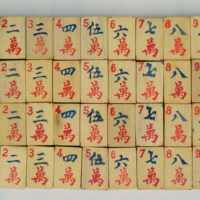 2二 3三 4四 5伍 6六 7七 8八 9
萬 萬 萬 萬 萬 萬 萬
2二 3三 4四 5伍 6六 7七 8八 9
萬 萬 萬 萬 萬 萬 萬
2二 3三 4四 5伍 6六 7七 8八 9
萬 萬 萬 萬 萬 萬 萬
2二 3三 4四 5伍 6六 7七 8八 9
萬 萬 萬 萬 萬 萬 萬